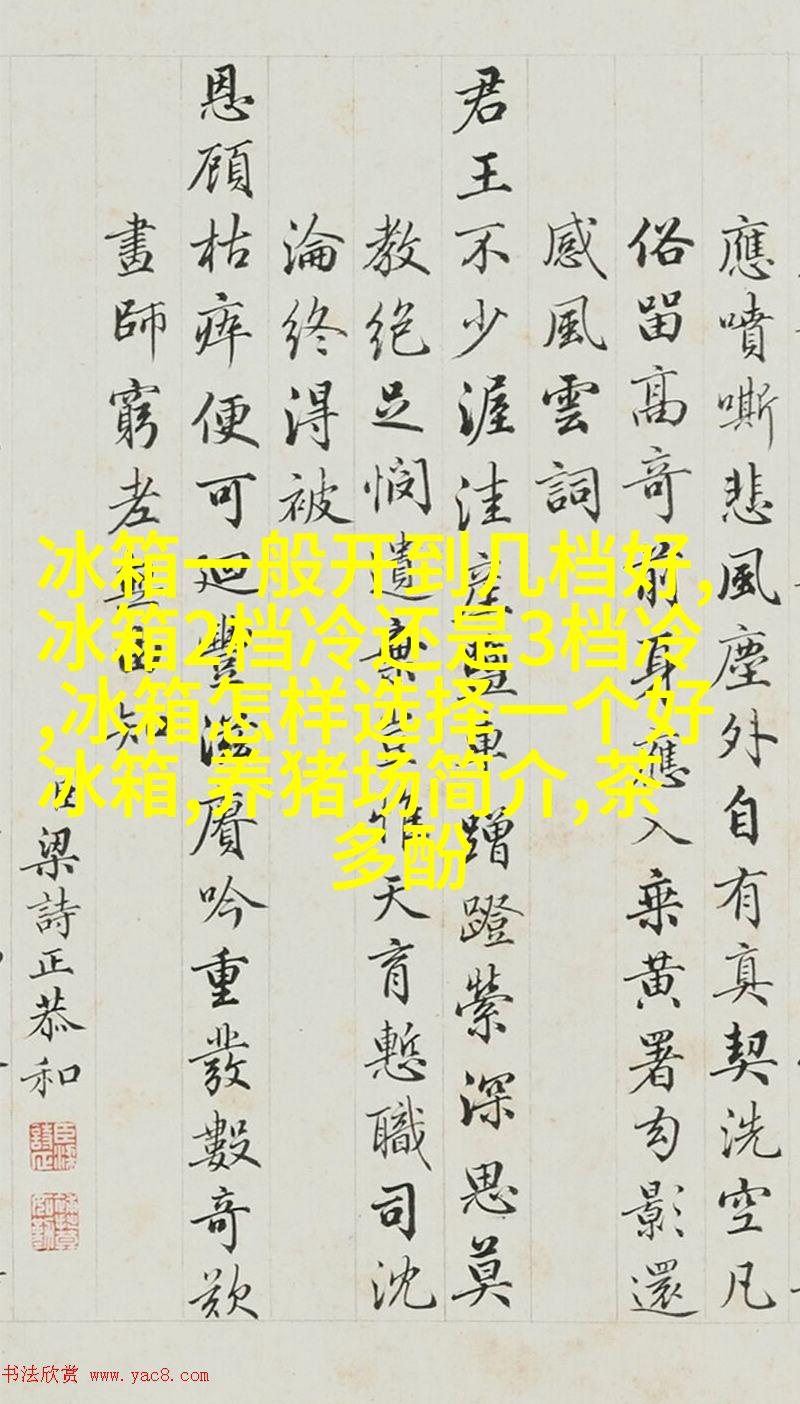 應噴嘶悲風塵外自有真契洗空凡
俗留高奇前身應入乘黃署勾影還
感風雲詞
君王不少渥洼產鹽車蹭蹬縈深思莫
教絕足憫遺棄天育慙職司沈
淪終得被
恩顧枯痺便可廻豐吟重發數奇歎
畫師窮老無由知
臣梁詩正恭和
冰箱一般开到几档好,
冰箱2档冷还是3档冷
,冰箱怎样选择一个好
冰箱,养猪场简介,茶
多酚
书法欣赏 www.yac8.com